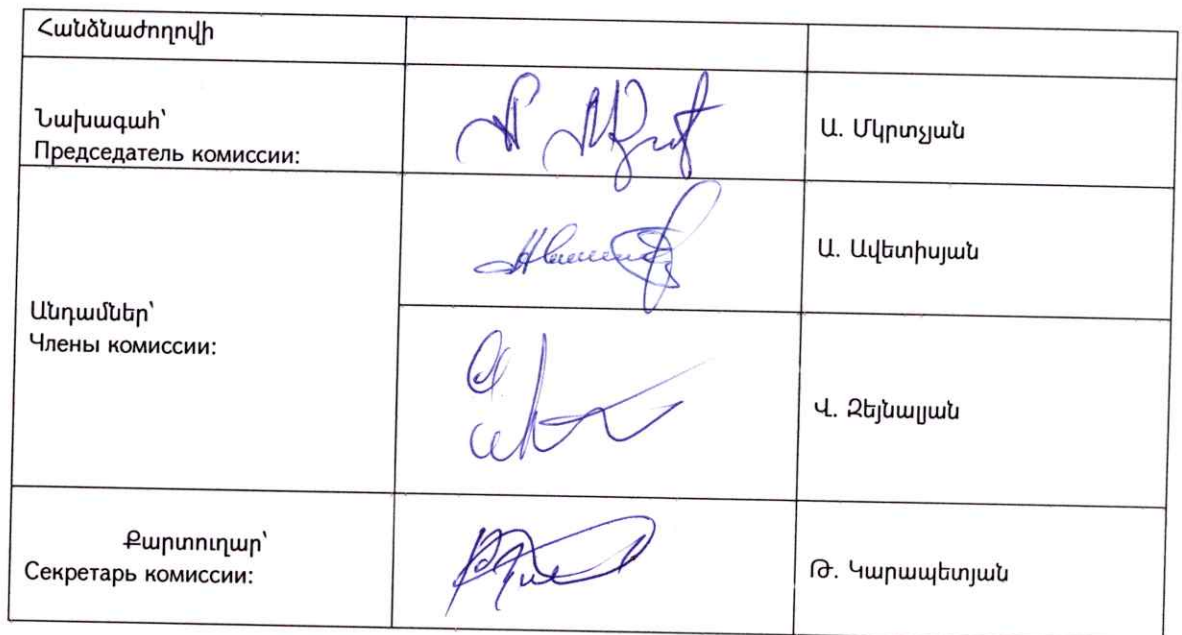 Հանձնաժողովի
Նախագահ՝
Председатель комиссии:
Ա. Մկրտչյան
Անդամներ՝
Члены комиссии:
Ա. Ավետիսյան
Վ. Զեյնալյան
Քարտուղար՝
Секретарь комиссии:
Թ. Կարապետյան